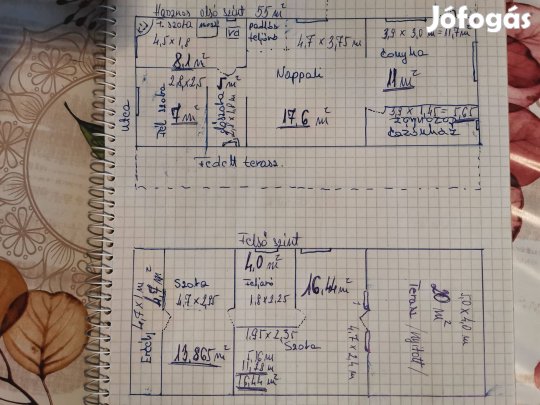 Jófogás
Hasznos alsó szint 55 m²
1. szoba
4,5 x 1,8
8,1 m²
padlás
feljáró
4,7 x 3,75 m
3,9 x 3,0 m = 11,7 m
Konyha
11 m²
Nappali
17,6 m²
2,8 x 2,5
Fél szoba
7 m²
utca
3,9 x 1,45 = 5,65
Fedett terasz
Felső szint
4,0 m²
Feljáró
1,8 x 2,25
16,44 m²
Szoba
4,7 x 2,95
13,865 m²
Erkély 4,7 x 1 m
4,7 m²
1,95 x 2,35
Szoba
5,16 m
11,28 m²
16,44 m²
4,7 x 2,4 m
Terasz /nyitott/
20 m²